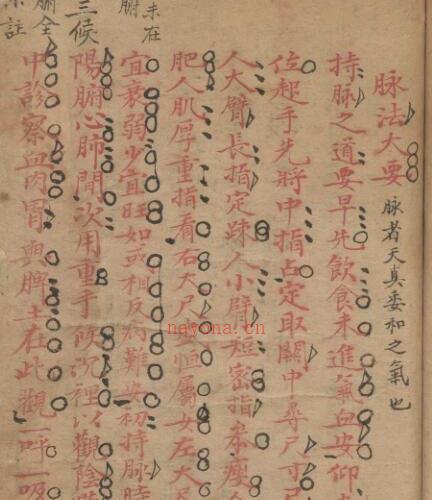 脉法大要 脉者天真委和之氣也
持脉之道要早先飲食未進氣血安仰
位起手先將中指占定取關中尋尺寸
人大臂長指定疎人小臂短密指奉瘦
肥人肌厚重指看右大尺 恒屬女左大
宜衰弱少宜旺如或相反病難安初持脉時
陽腑心肺間次用重手候沉裡以觀陰
中診察血肉胃與脾土在此觀一呼一吸
未在
腑
三候
腑全
未註
nayona.cn